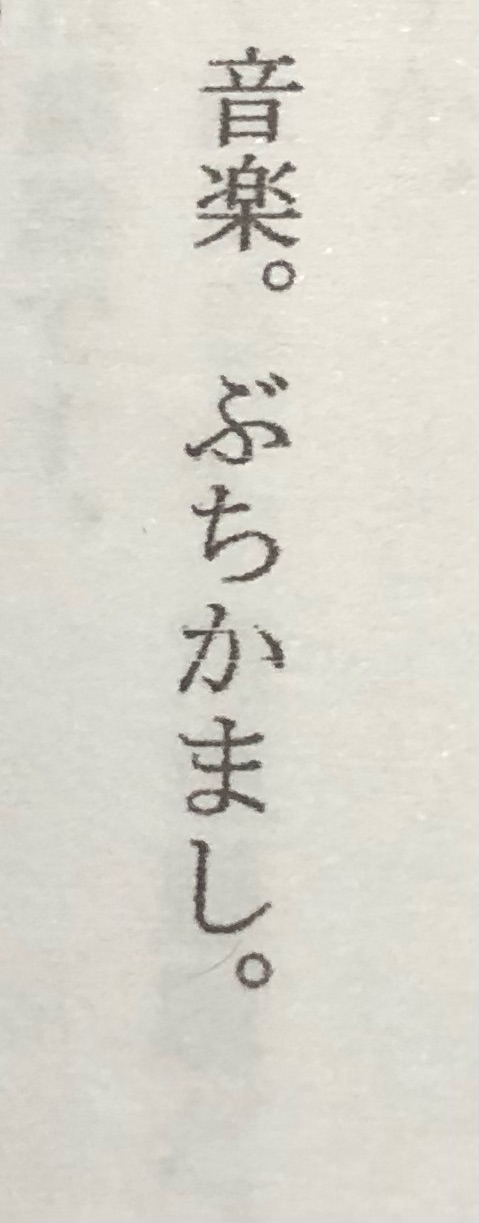 音楽。ぶちかまし。